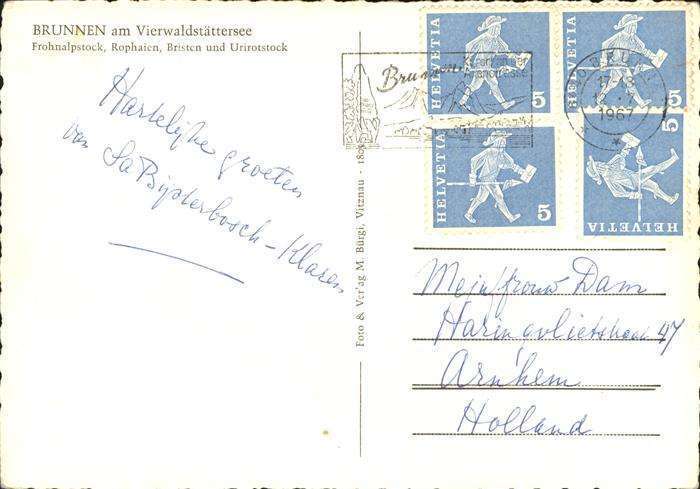 BRUNNEN am Vierwaldstättersee
Frohnalpstock, Rophaien, Bristen und Urirotstock
Hartelijke groeten
van Sa Bijsterbosch-Klaren
Foto & Verlag M. Bürgi, Vitznau
HELVETIA 5
HELVETIA 5
HELVETIA 5
HELVETIA 5
Brunnen
1967
Mejufrouw Dam
Haringvlietstraat 47
Arnhem
Holland